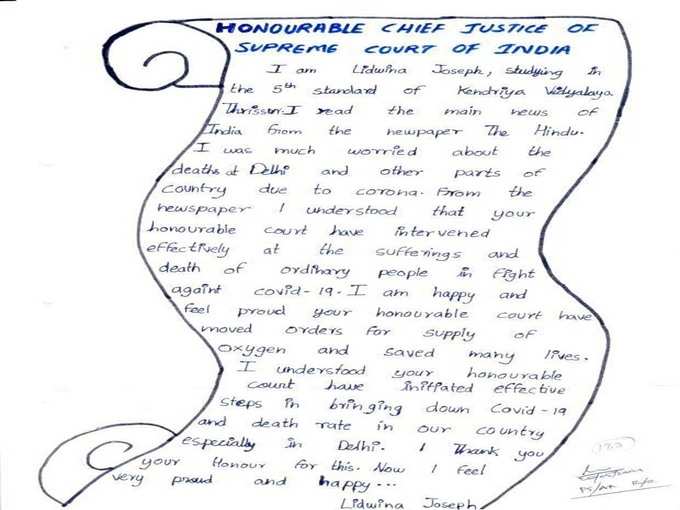 HONOURABLE CHIEF JUSTICE OF
SUPREME COURT OF INDIA
I am Lidwina Joseph, studying in
the 5th standard of Kendriya Vidyalaya
Thrissur. I read the main news of
India from the newspaper The Hindu.
I was much worried about the
deaths at Delhi and other parts of
country due to corona. From the
newspaper I understood that your
honourable court have intervened
effectively at the sufferings and
death of ordinary people in fight
againt covid-19. I am happy and
feel proud your honourable court have
moved orders for supply of
oxygen and saved many lives.
I understood your honourable
court have initiated effective
steps in bringing down Covid-19
and death rate in our country
especially in Delhi. I Thank you
your Honour for this. Now I feel
very proud and happy...
Lidwina Joseph